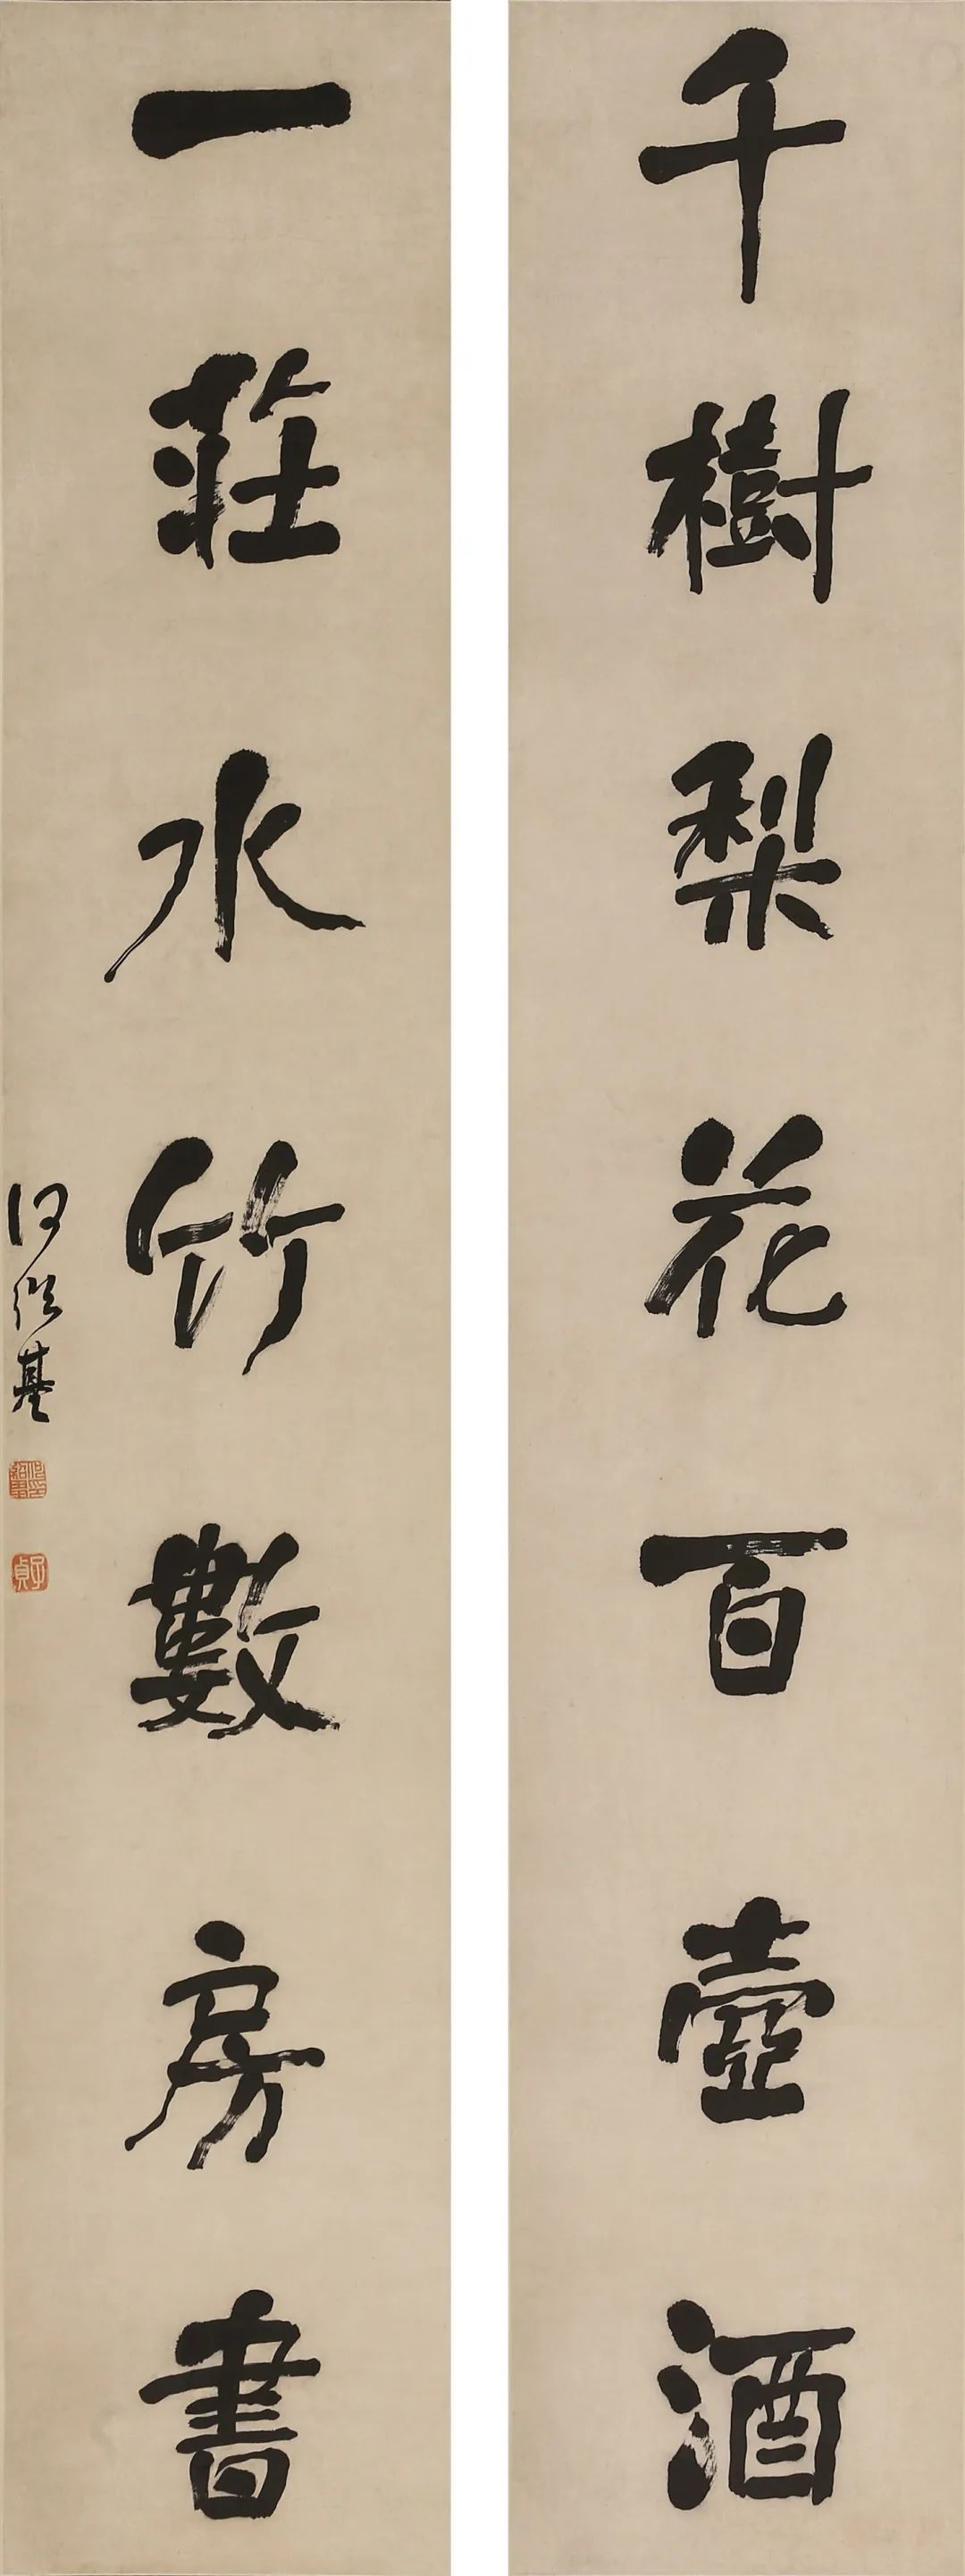 千樹梨花百壺酒
一莊水竹數房書
何紹基
子貞